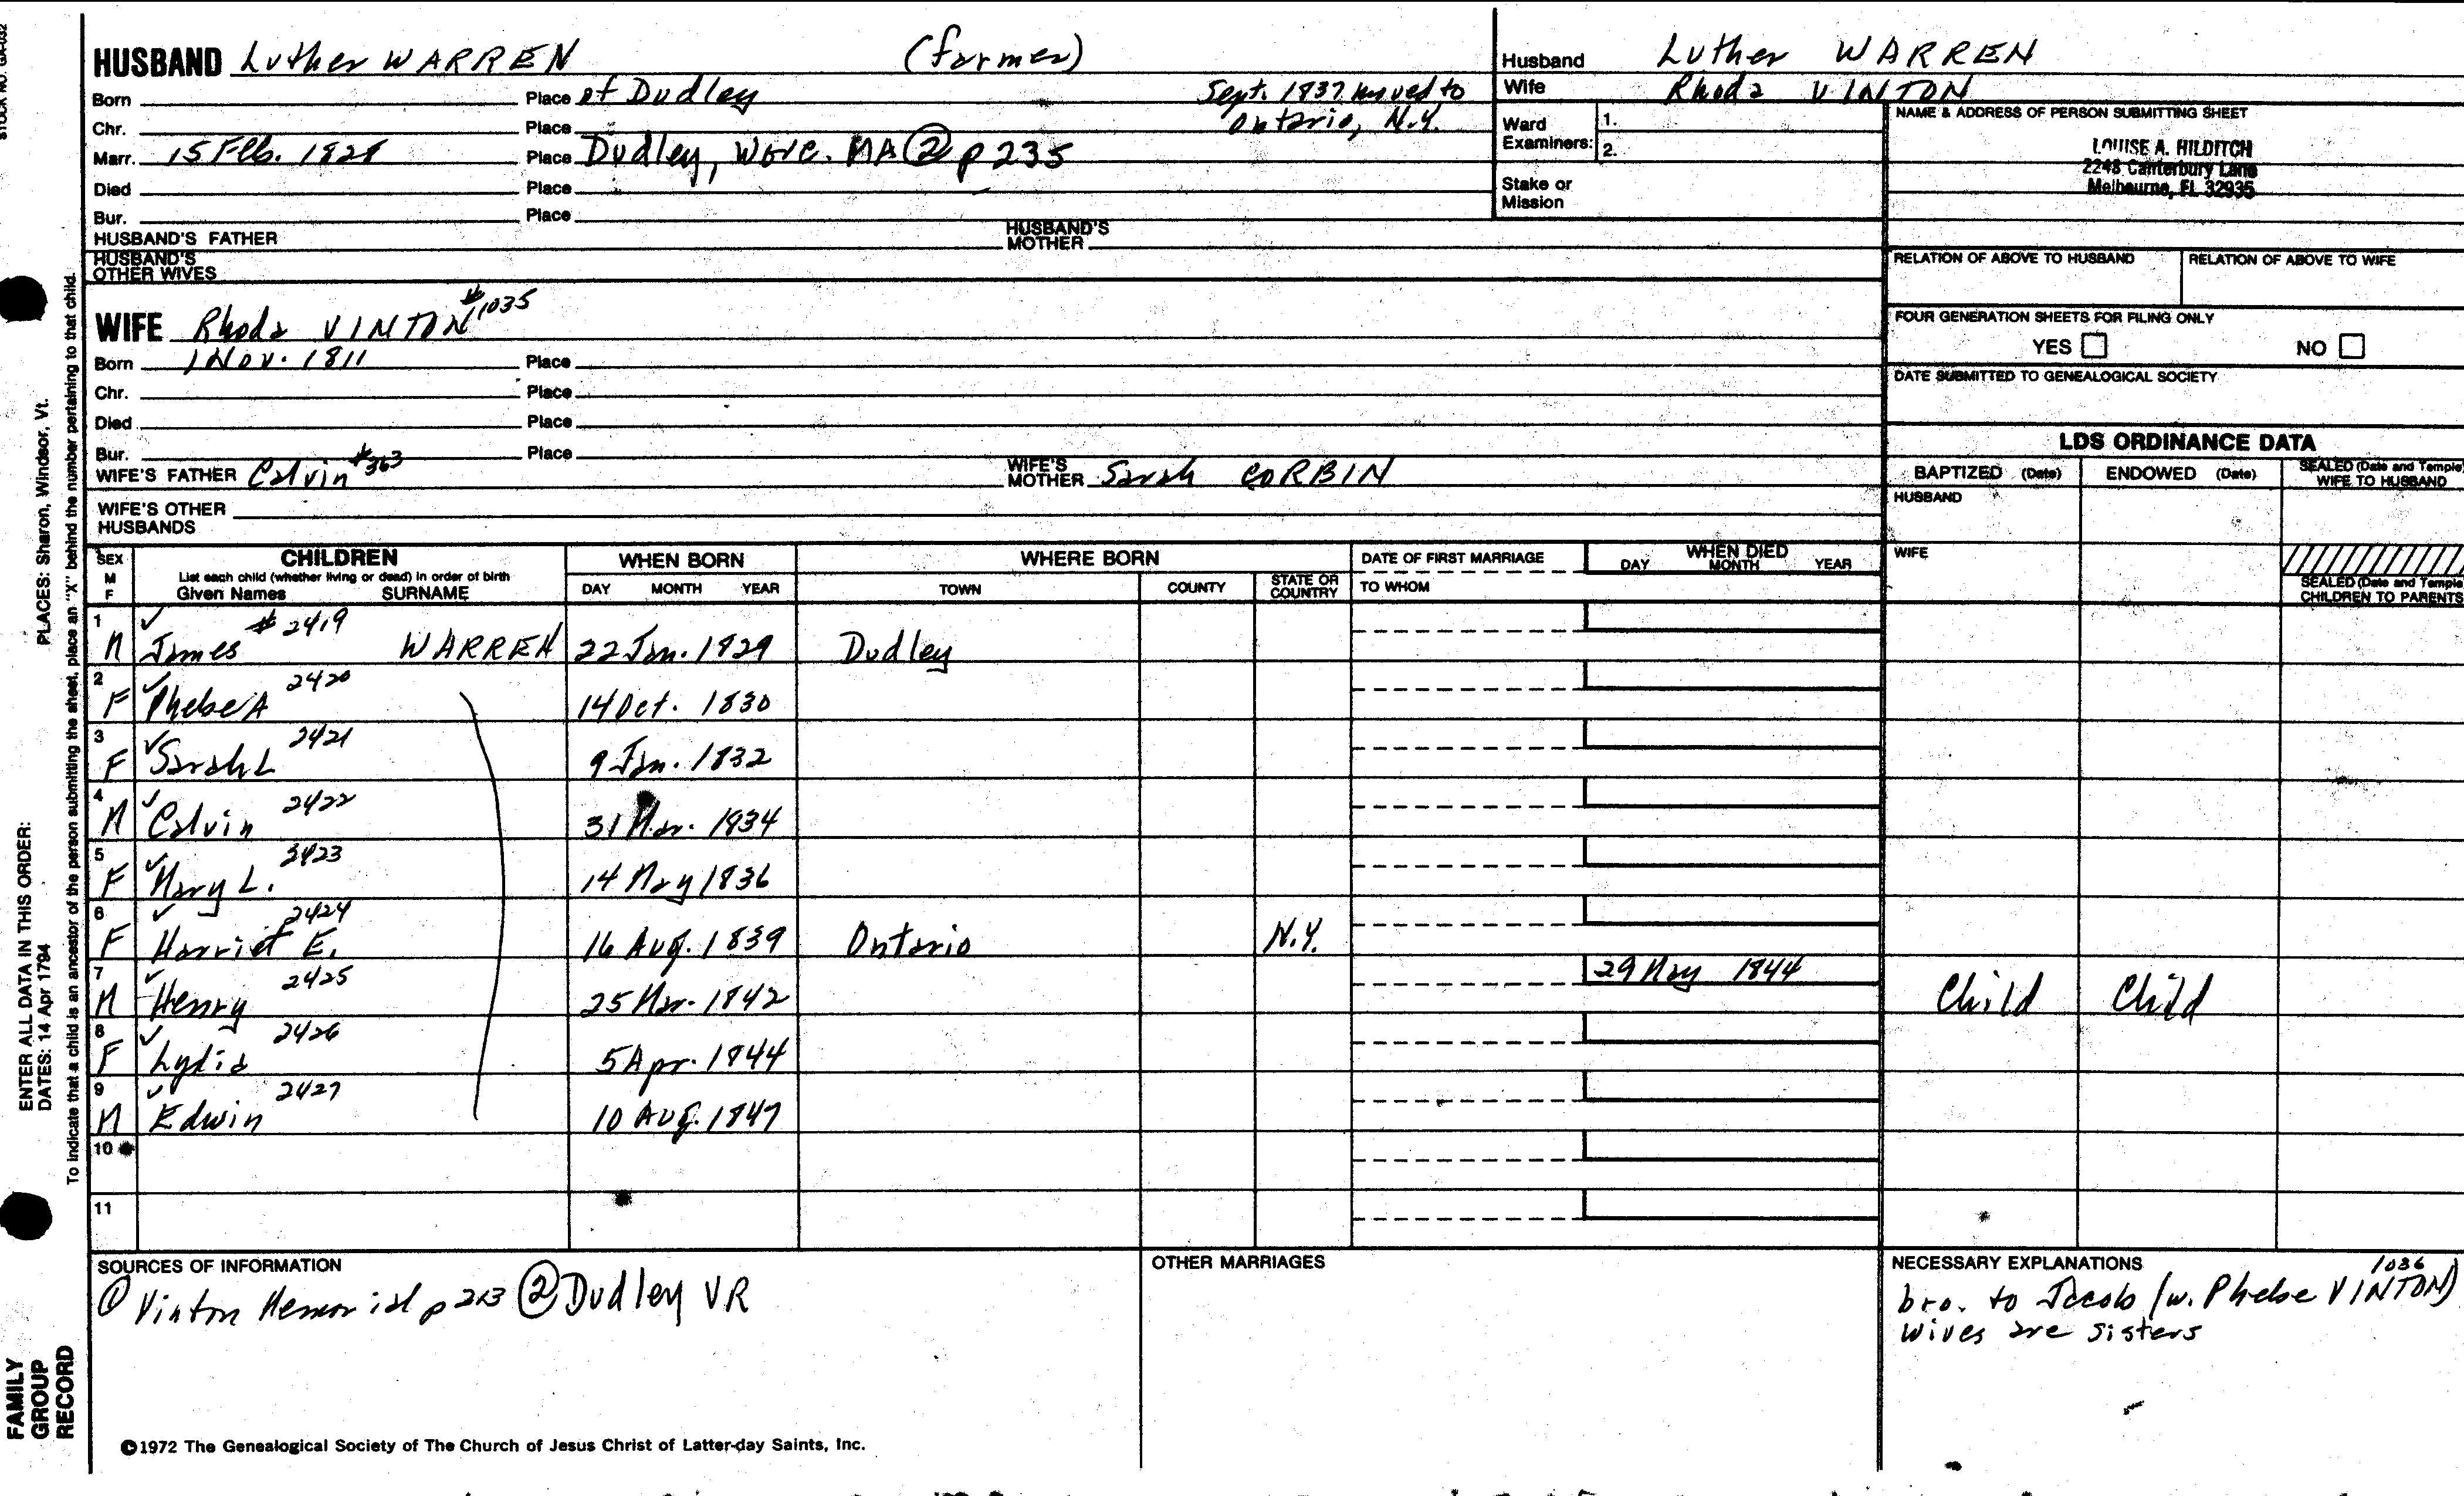 STOCK NO. GA-032
HUSBAND Luther WARREN (farmer)
Born Place of Dudley Sept. 1837 moved to
Ontario, N.Y.
Chr. Place
Marr. 15 Feb. 1828 Place Dudley, Worc. MA ② p 235
Died Place
Bur. Place
HUSBAND'S FATHER HUSBAND'S MOTHER
HUSBAND'S OTHER WIVES
Husband Luther WARREN
Wife Rhoda VINTON
Ward Examiners: 1.
2.
Stake or Mission
NAME & ADDRESS OF PERSON SUBMITTING SHEET
LOUISE A. HILDITCH
2248 Canterbury Lane
Melbourne, FL 32935
RELATION OF ABOVE TO HUSBAND RELATION OF ABOVE TO WIFE
FOUR GENERATION SHEETS FOR FILING ONLY
YES NO
DATE SUBMITTED TO GENEALOGICAL SOCIETY
WIFE Rhoda VINTON #1035
Born 1 Nov. 1811 Place
Chr. Place
Died Place
Bur. Place
WIFE'S FATHER Calvin #363 WIFE'S MOTHER Sarah CORBIN
WIFE'S OTHER HUSBANDS
LDS ORDINANCE DATA
BAPTIZED (Date) ENDOWED (Date) SEALED (Date and Temple) WIFE TO HUSBAND
HUSBAND
WIFE
SEALED (Date and Temple) CHILDREN TO PARENTS
SEX M F CHILDREN WHEN BORN WHERE BORN DATE OF FIRST MARRIAGE WHEN DIED
List each child (whether living or dead) in order of birth
Given Names SURNAME DAY MONTH YEAR TOWN COUNTY STATE OR COUNTRY TO WHOM DAY MONTH YEAR
1 M ✓ James #2419 WARREN 22 Jan. 1829 Dudley
2 F ✓ Phebe A 2420 14 Oct. 1830
3 F ✓ Sarah L 2421 9 Jan. 1832
4 M ✓ Calvin 2422 31 Mar. 1834
5 F ✓ Mary L. 2423 14 May 1836
6 F ✓ Harriet E. 2424 16 Aug. 1839 Ontario N.Y.
7 M ✓ Henry 2425 25 Mar. 1842 29 May 1844 Child Child
8 F ✓ Lydia 2426 5 Apr. 1844
9 M ✓ Edwin 2427 10 Aug. 1847
10
11
SOURCES OF INFORMATION
① Vinton Memorial p 213 ② Dudley VR
OTHER MARRIAGES
NECESSARY EXPLANATIONS
bro. to Jacob (w. Phebe VINTON) 1036
wives are sisters
©1972 The Genealogical Society of The Church of Jesus Christ of Latter-day Saints, Inc.
ENTER ALL DATA IN THIS ORDER:
DATES: 14 Apr 1794 PLACES: Sharon, Windsor, Vt.
To indicate that a child is an ancestor of the person submitting the sheet, place an "X" behind the number pertaining to that child.
FAMILY
GROUP
RECORD